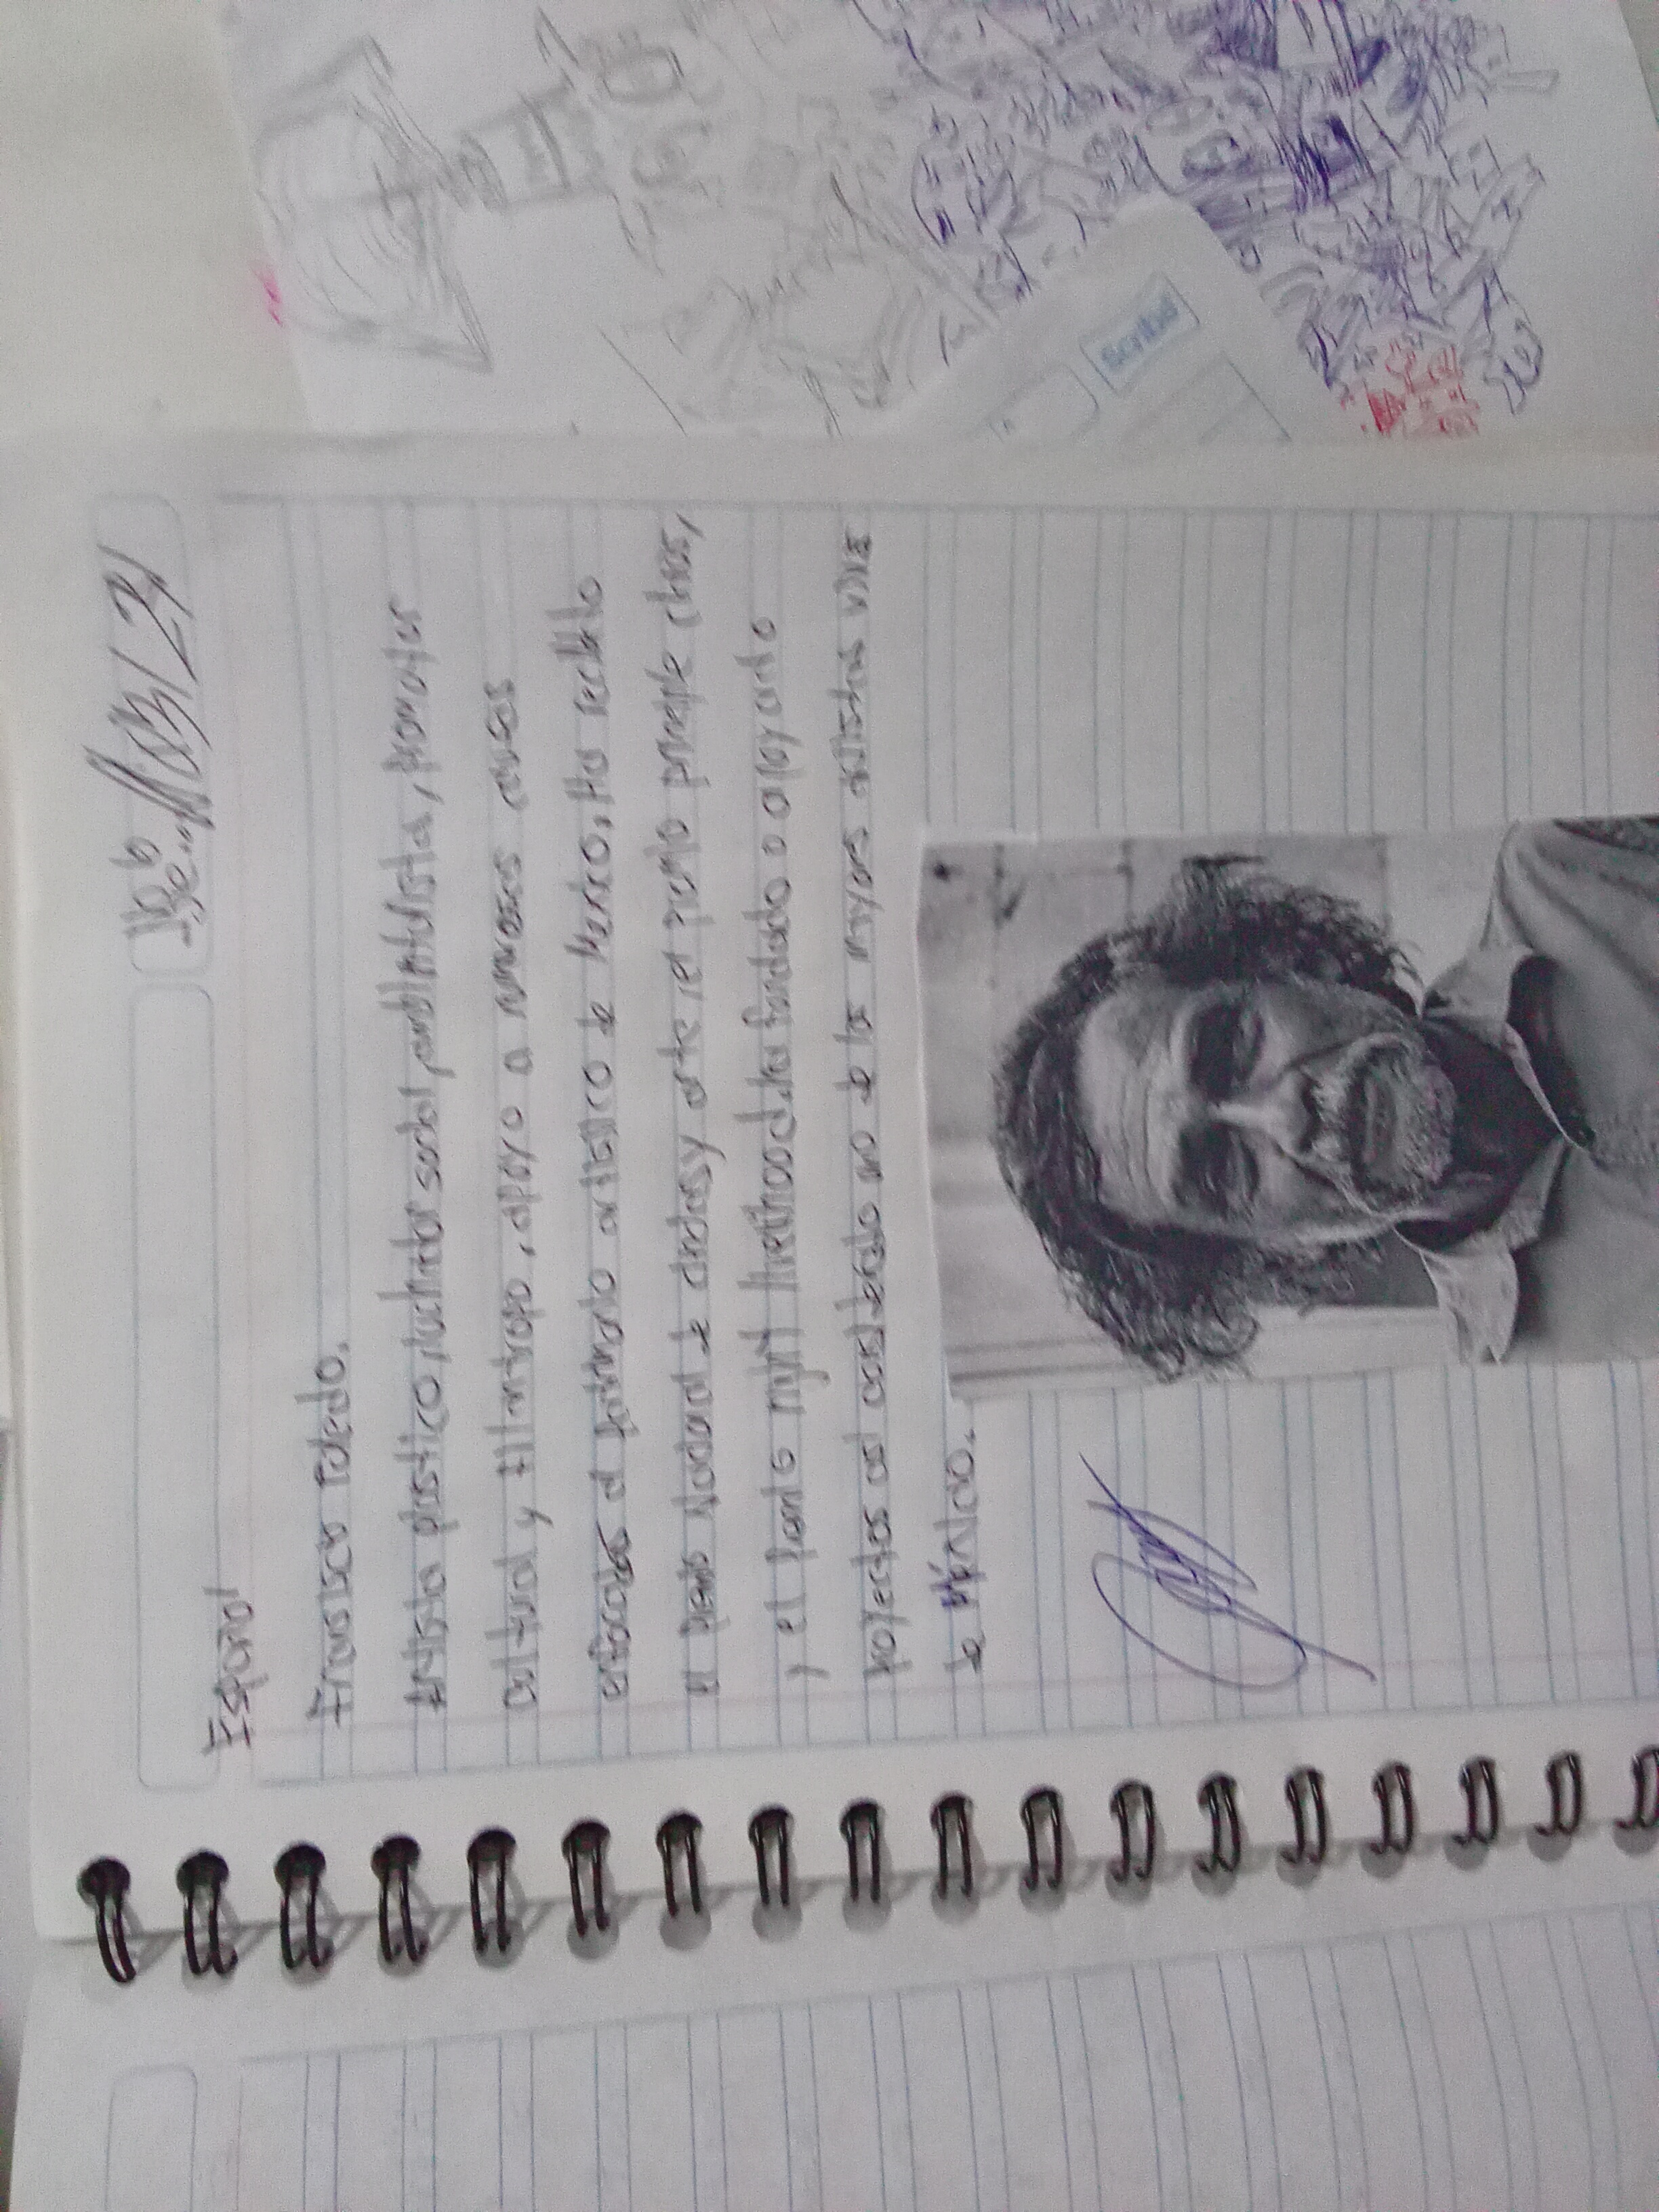 No. 6
Español
Francisco Toledo.
Artista plastico, luchador social, ambientalista, promotor
cultural y filantropo, apoyo a numerosas causas
enfocadas al patrimonio artistico de Mexico, Ha recibido
el premio Nacional de ciencias y arte, el premio principe claus,
y el premio right livelihood, ha fundado o apoyado
proyectos asi considerado uno de los mayores artistas vivos
de México.
Scribe